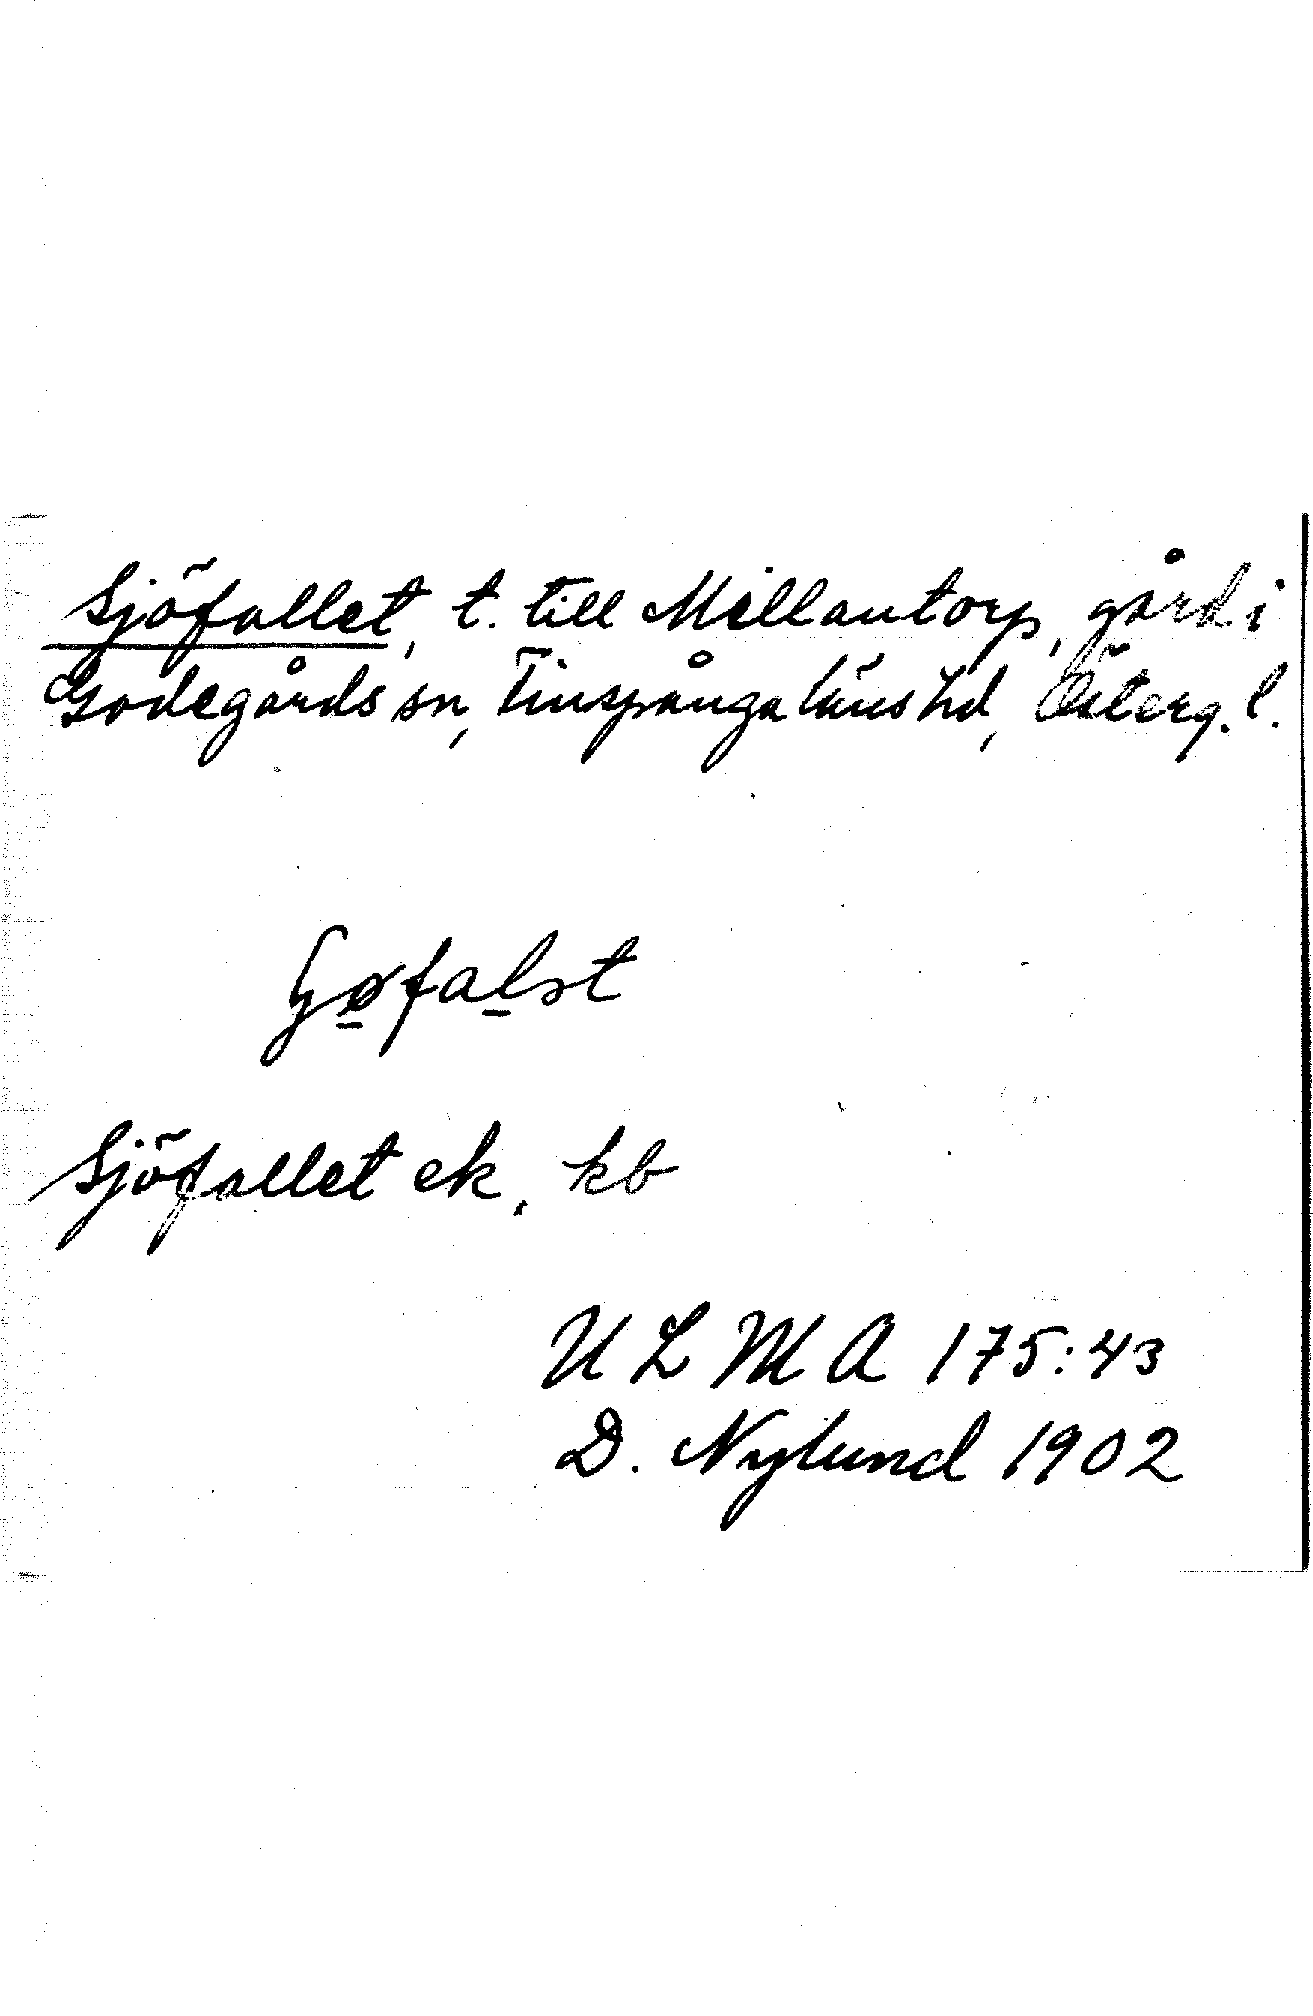 Sjöfallet, t. till Mellantorp, gård i
Godegårds sn, Finspånga läns hd, Österg. l.
Sjöfallet ek, kb
U L M A 175:43
D. Nylund 1902